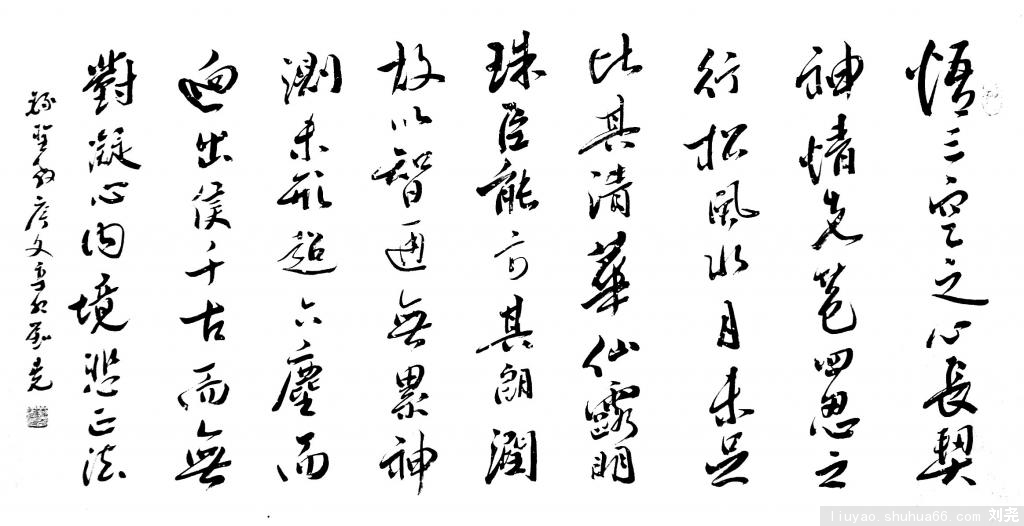 悟三空之心長契
神情先苞四忍之
行松風水月未足
比其清華仙露明
珠臣能方其朗潤
故以智通無累神
測未形超六塵而
迥出隻千古而無
對凝心内境悲正法
錄聖教序文劉堯
liuyao.shuhua66.com 刘尧